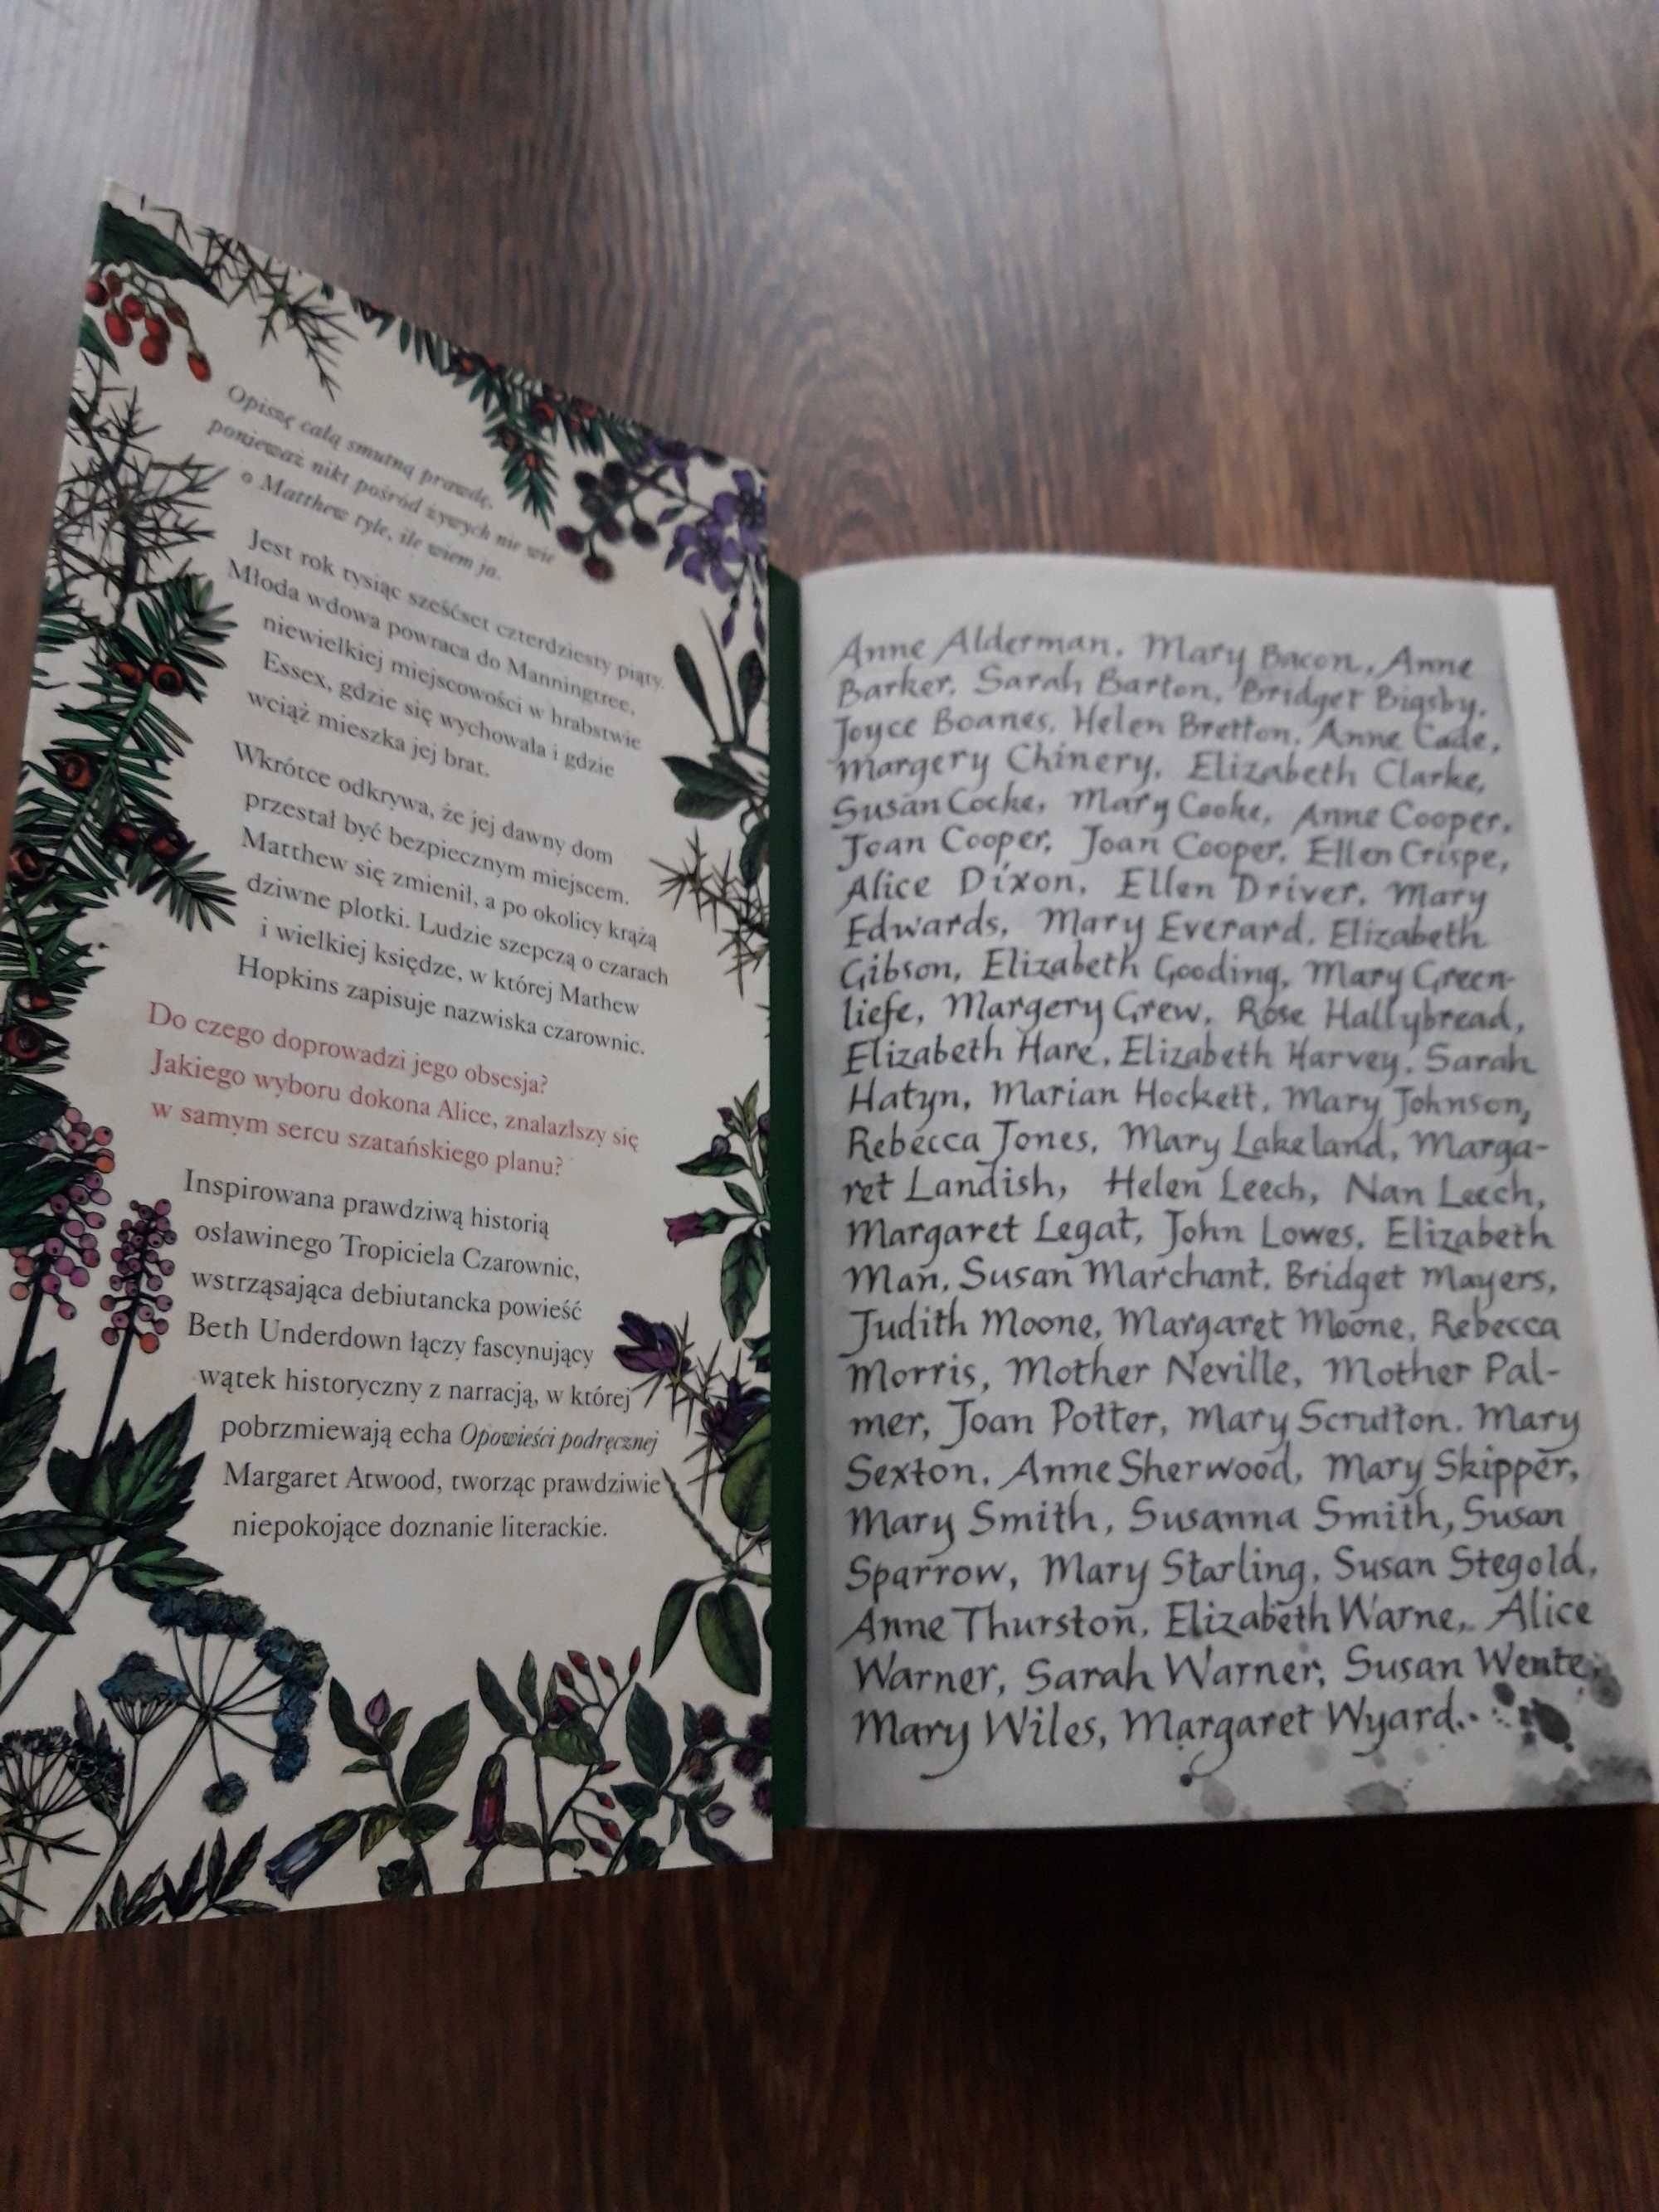 Opiszę całą smutną prawdę,
ponieważ nikt pośród żywych nie wie
o Matthew tyle, ile wiem ja.
Jest rok tysiąc sześćset czterdziesty piąty.
Młoda wdowa powraca do Manningtree,
niewielkiej miejscowości w hrabstwie
Essex, gdzie się wychowała i gdzie
wciąż mieszka jej brat.
Wkrótce odkrywa, że jej dawny dom
przestał być bezpiecznym miejscem.
Matthew się zmienił, a po okolicy krążą
dziwne plotki. Ludzie szepczą o czarach
i wielkiej księdze, w której Mathew
Hopkins zapisuje nazwiska czarownic.
Do czego doprowadzi jego obsesja?
Jakiego wyboru dokona Alice, znalazłszy się
w samym sercu szatańskiego planu?
Inspirowana prawdziwą historią
osławinego Tropiciela Czarownic,
wstrząsająca debiutancka powieść
Beth Underdown łączy fascynujący
wątek historyczny z narracją, w której
pobrzmiewają echa Opowieści podręcznej
Margaret Atwood, tworząc prawdziwie
niepokojące doznanie literackie.
Anne Alderman, Mary Bacon, Anne
Barker, Sarah Barton, Bridget Bigsby,
Joyce Boanes, Helen Bretton, Anne Cade,
Margery Chinery, Elizabeth Clarke,
Susan Cocke, Mary Cooke, Anne Cooper,
Joan Cooper, Joan Cooper, Ellen Crispe,
Alice Dixon, Ellen Driver, Mary
Edwards, Mary Everard, Elizabeth
Gibson, Elizabeth Gooding, Mary Green-
liefe, Margery Grew, Rose Hallybread,
Elizabeth Hare, Elizabeth Harvey, Sarah
Hatyn, Marian Hockett, Mary Johnson,
Rebecca Jones, Mary Lakeland, Marga-
ret Landish, Helen Leech, Nan Leech,
Margaret Legat, John Lowes, Elizabeth
Man, Susan Marchant, Bridget Mayers,
Judith Moone, Margaret Moone, Rebecca
Morris, Mother Neville, Mother Pal-
mer, Joan Potter, Mary Scrutton, Mary
Sexton, Anne Sherwood, Mary Skipper,
Mary Smith, Susanna Smith, Susan
Sparrow, Mary Starling, Susan Stegold,
Anne Thurston, Elizabeth Warne, Alice
Warner, Sarah Warner, Susan Wente,
Mary Wiles, Margaret Wyard..